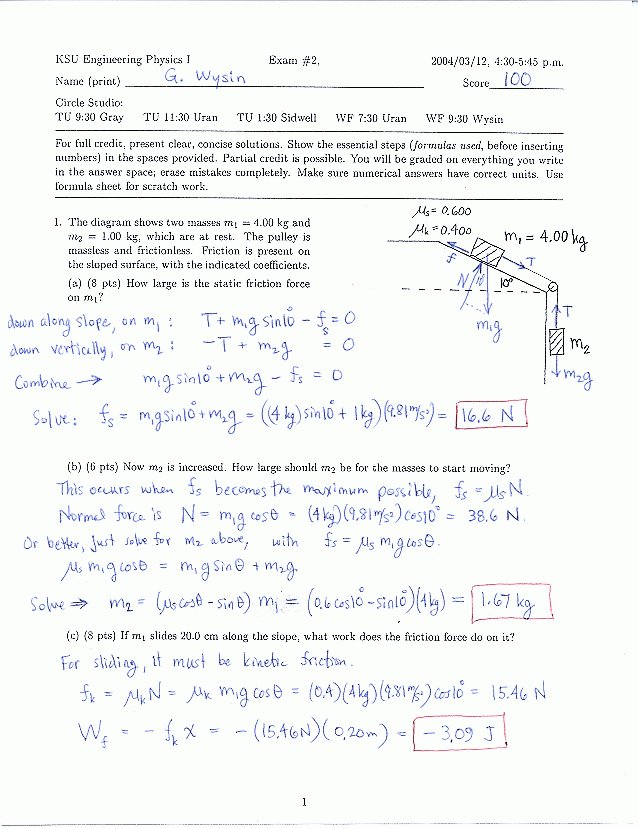 KSU Engineering Physics I Exam #2, 2004/03/12, 4:30-5:45 p.m.
Name (print) G. Wysin Score 100
Circle Studio:
TU 9:30 Gray TU 11:30 Uran TU 1:30 Sidwell WF 7:30 Uran WF 9:30 Wysin
For full credit, present clear, concise solutions. Show the essential steps (formulas used, before inserting
numbers) in the spaces provided. Partial credit is possible. You will be graded on everything you write
in the answer space; erase mistakes completely. Make sure numerical answers have correct units. Use
formula sheet for scratch work.
1. The diagram shows two masses m₁ = 4.00 kg and
m₂ = 1.00 kg, which are at rest. The pulley is
massless and frictionless. Friction is present on
the sloped surface, with the indicated coefficients.
(a) (8 pts) How large is the static friction force
on m₁?
μs = 0.600
μk = 0.400
m₁ = 4.00 kg
f
T
N
10°
10°
m₁g
T
m₂
m₂g
down along slope, on m₁ : T + m₁g sin10° - fs = 0
down vertically, on m₂ : -T + m₂g = 0
Combine → m₁g sin10° + m₂g - fs = 0
Solve: fs = m₁g sin10° + m₂g = ((4 kg) sin10° + 1kg)(9.81 m/s²) = 16.6 N
(b) (6 pts) Now m₂ is increased. How large should m₂ be for the masses to start moving?
This occurs when fs becomes the maximum possible, fs = μsN.
Normal force is N = m₁g cosθ = (4kg)(9.81 m/s²) cos10° = 38.6 N.
Or better, just solve for m₂ above, with fs = μs m₁g cosθ.
μs m₁g cosθ = m₁g sinθ + m₂g.
Solve ⇒ m₂ = (μs cosθ - sinθ) m₁ = (0.6 cos10° - sin10°)(4kg) = 1.67 kg
(c) (8 pts) If m₁ slides 20.0 cm along the slope, what work does the friction force do on it?
For sliding, it must be kinetic friction.
fk = μkN = μk m₁g cosθ = (0.4)(4kg)(9.81 m/s²) cos10° = 15.46 N
Wf = - fk x = - (15.46N)(0.20m) = -3.09 J
1